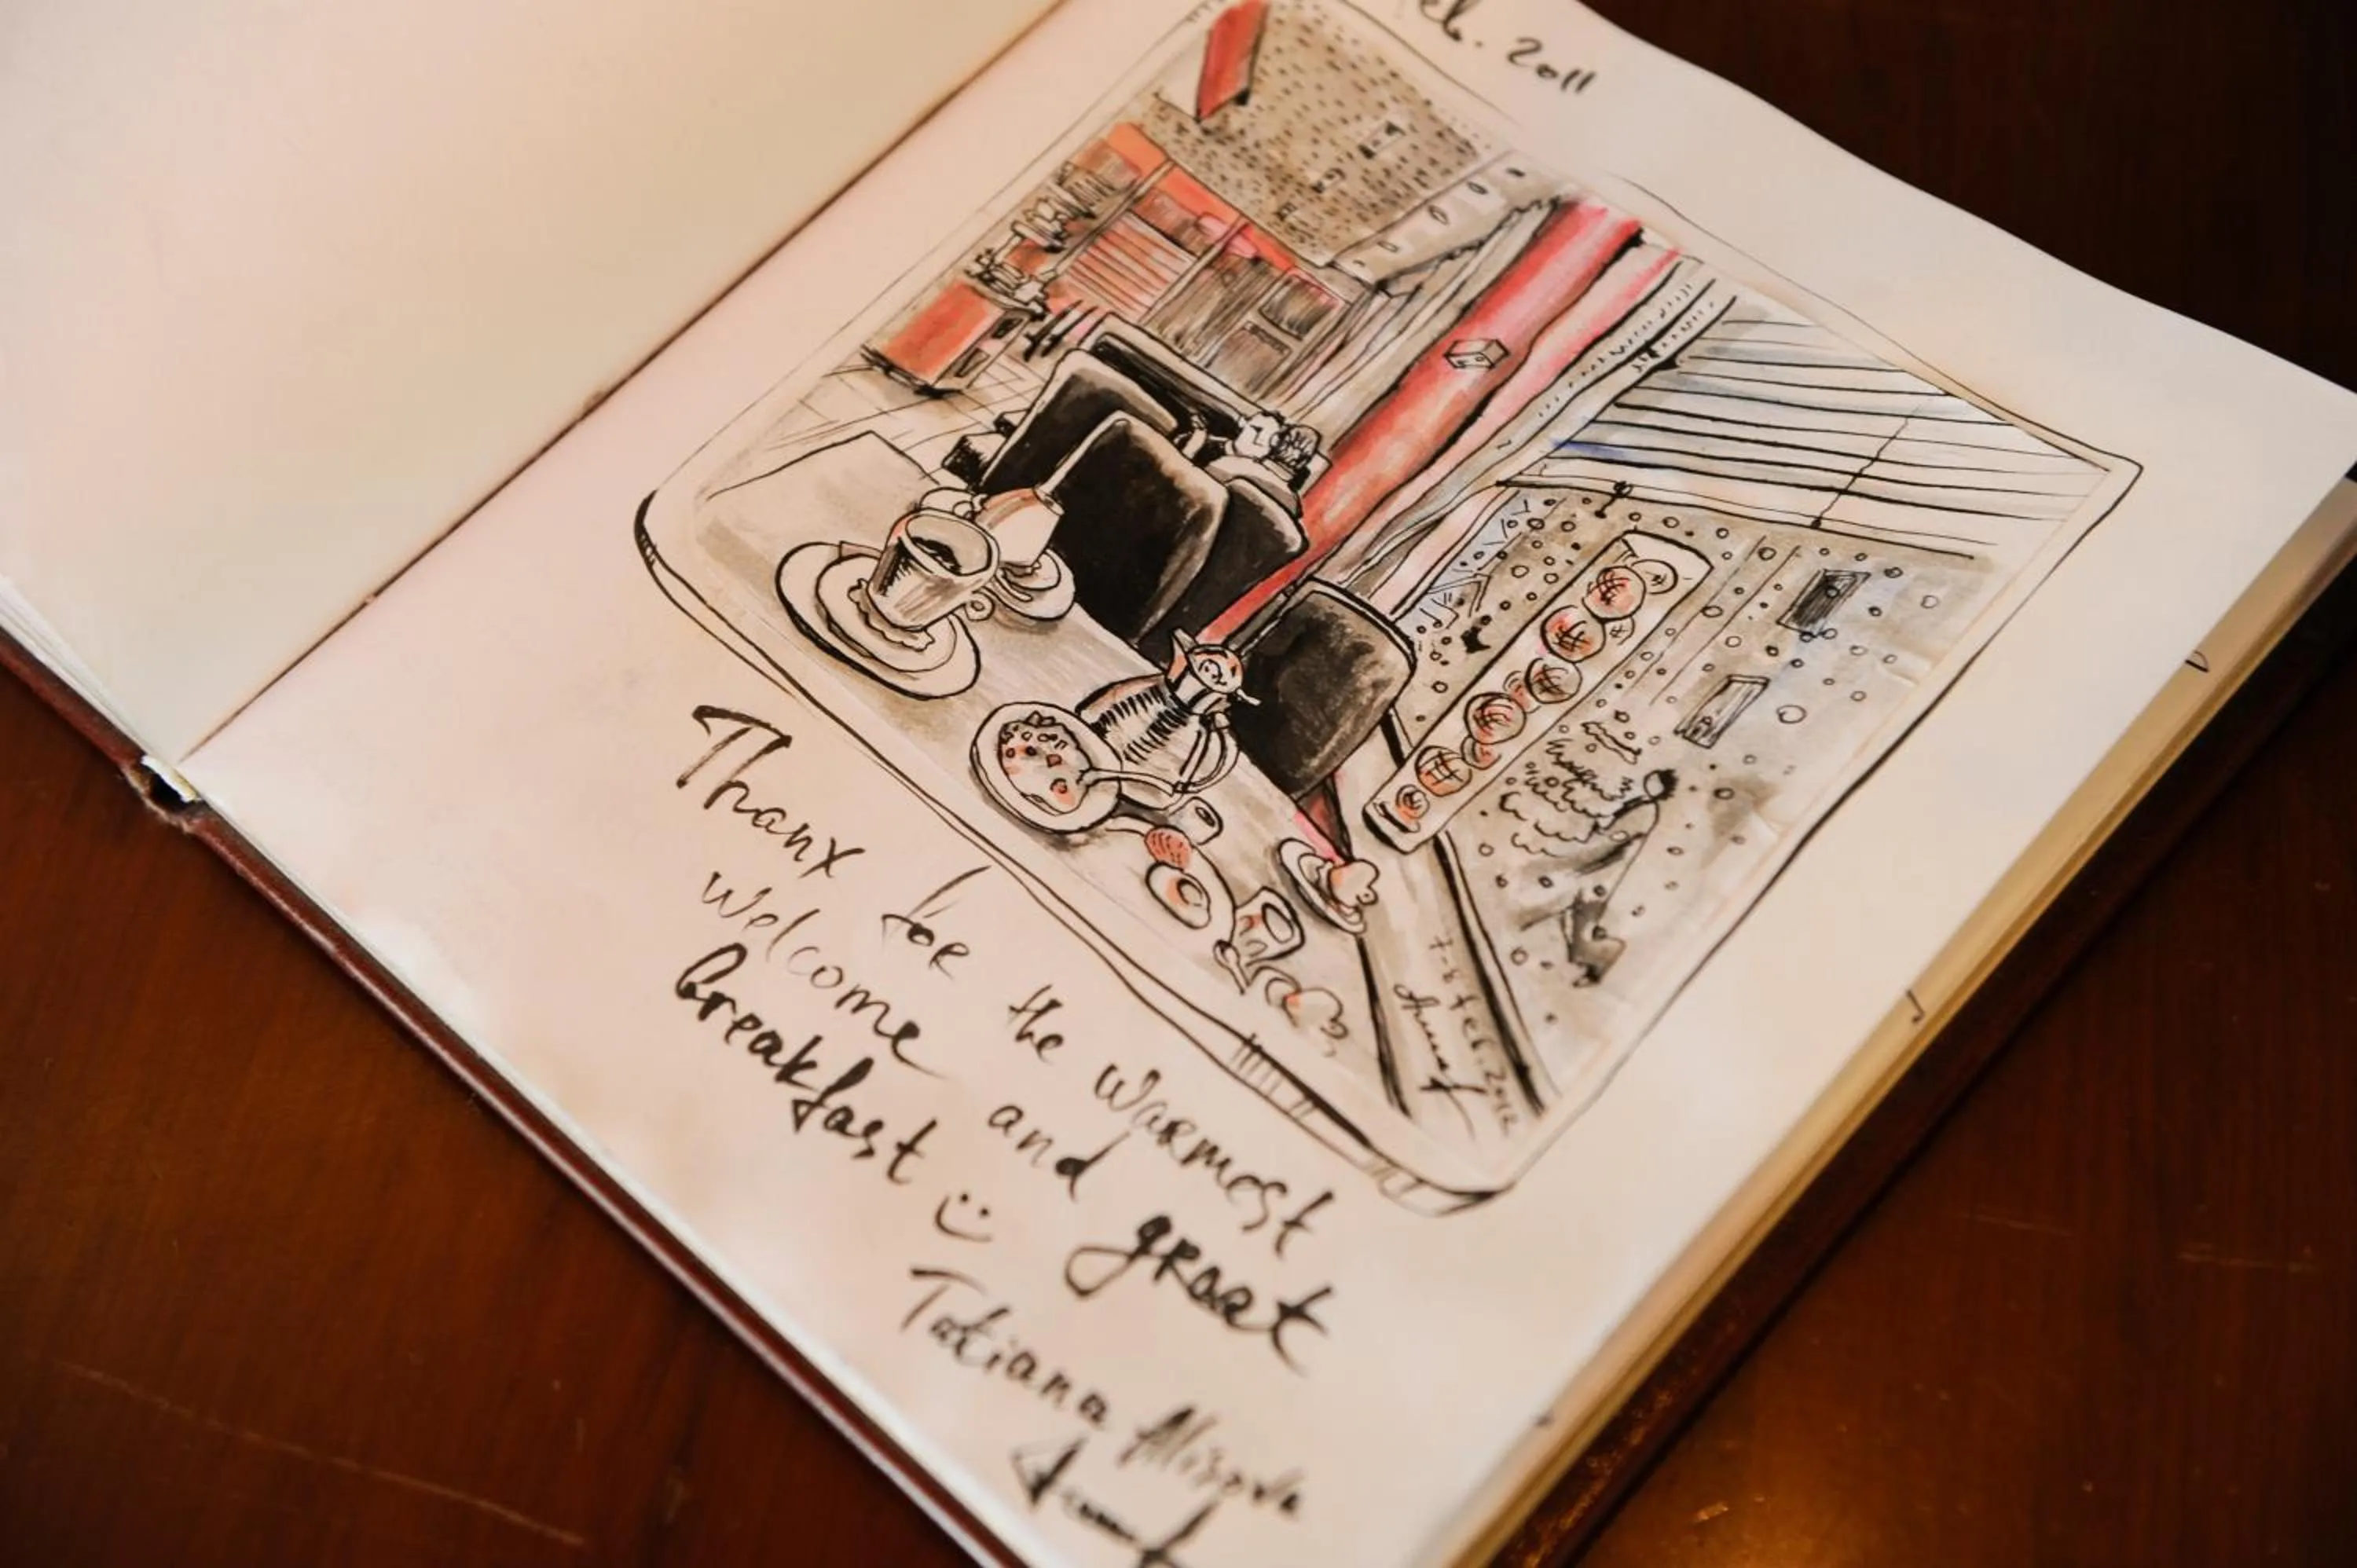 2011
7-8 Feb. 2012
Thanx for the warmest
welcome and great
breakfast :)
Tatiana